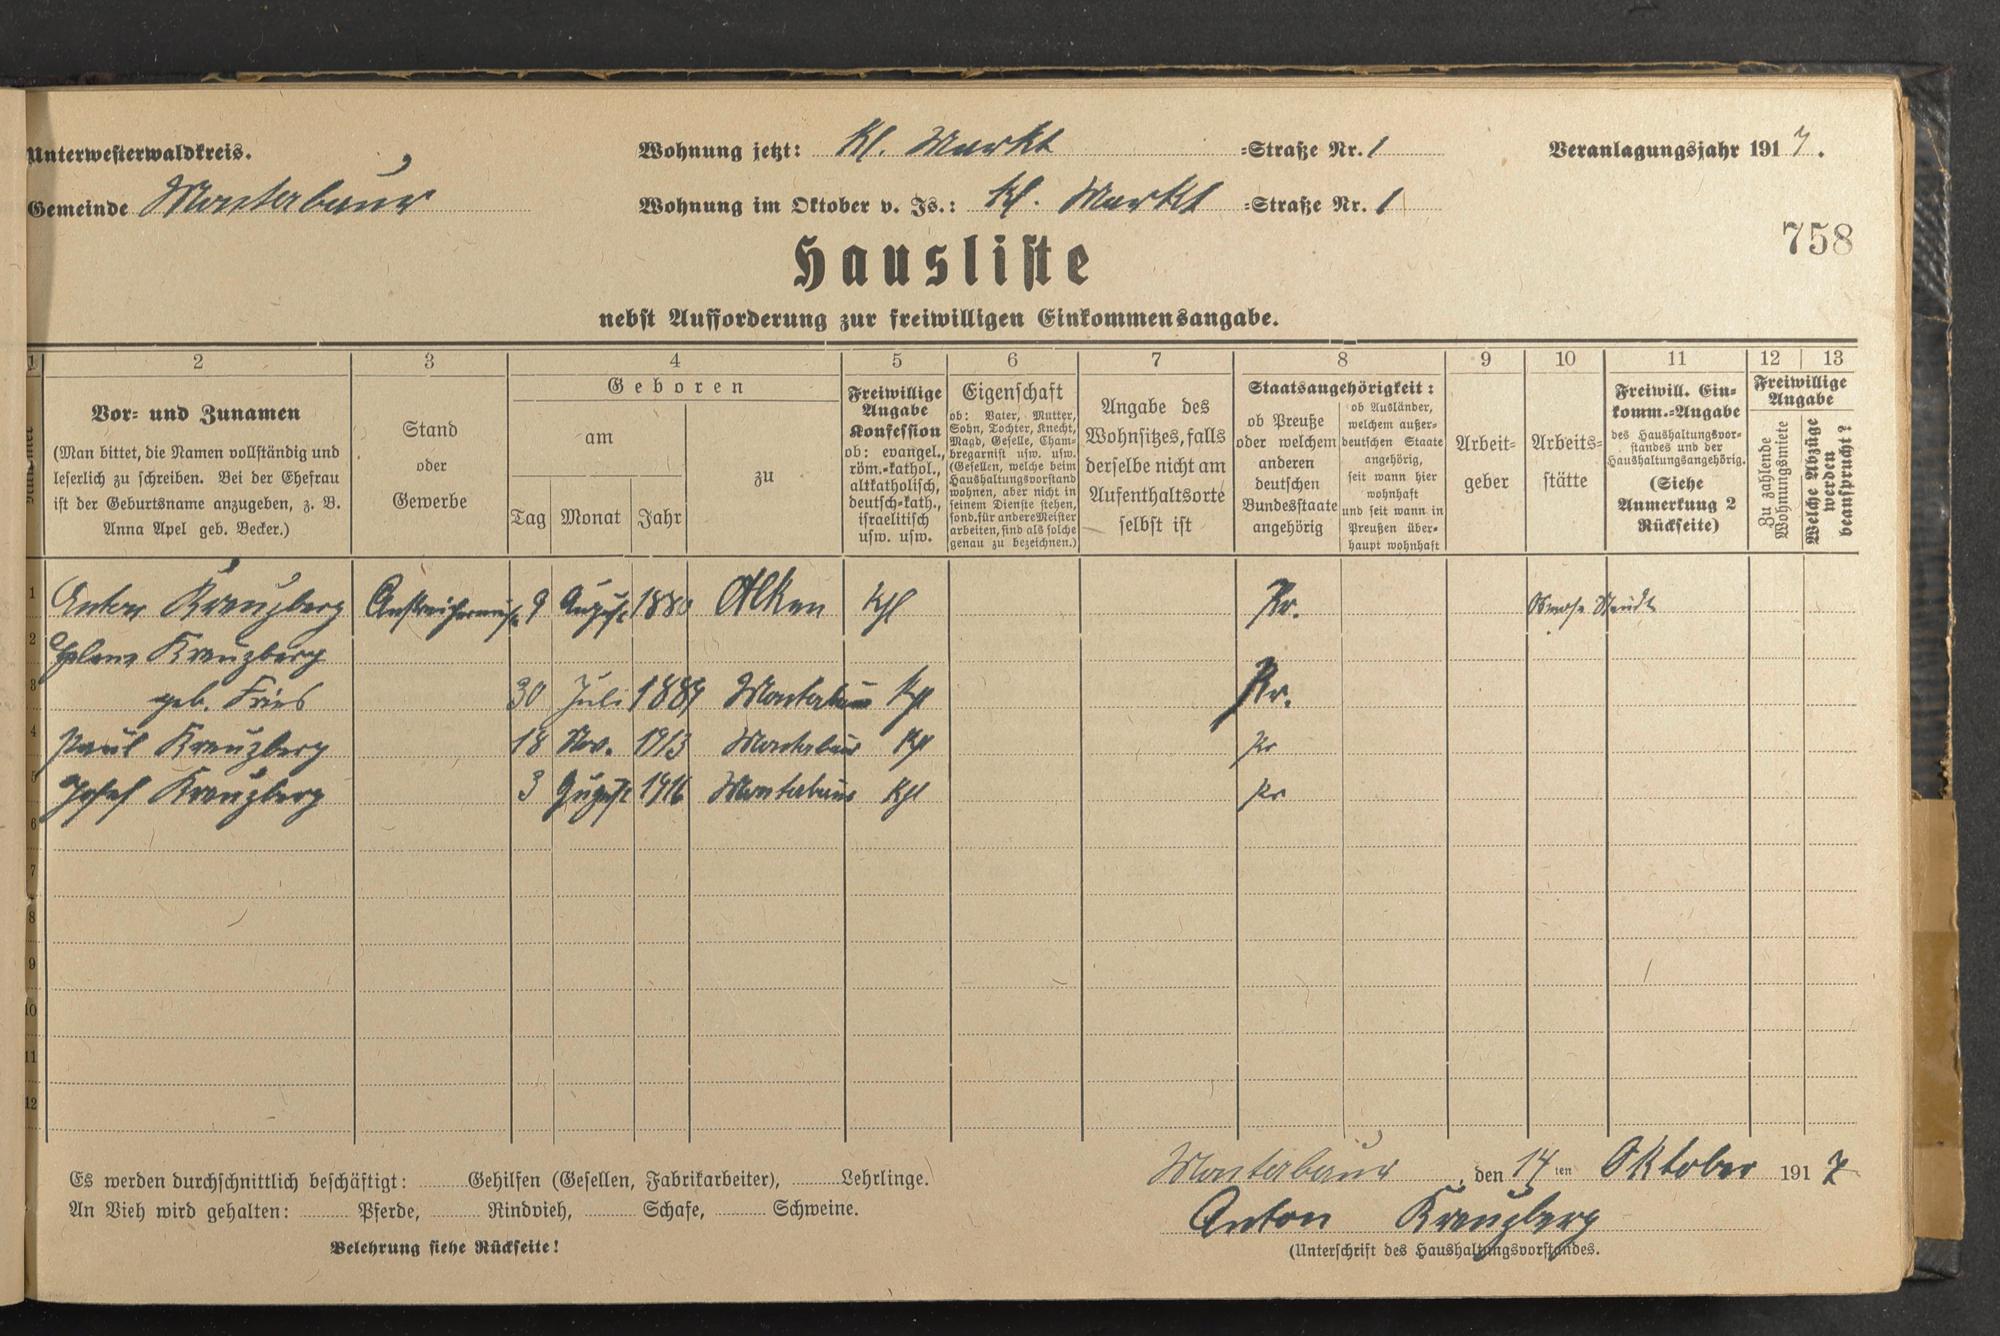 Unterwesterwaldkreis.
Wohnung jetzt: Kl. Markt =Straße Nr. 1
Veranlagungsjahr 1917.
Gemeinde Montabaur
Wohnung im Oktober v. Js.: Kl. Markt =Straße Nr. 1
758
Hausliste
nebst Aufforderung zur freiwilligen Einkommensangabe.
1 2 3 4 5 6 7 8 9 10 11 12 13
Vor= und Zunamen
(Man bittet, die Namen vollständig und
leserlich zu schreiben. Bei der Ehefrau
ist der Geburtsname anzugeben, z. B.
Anna Apel geb. Becker.)
Stand
oder
Gewerbe
Geboren
am
Tag Monat Jahr
zu
Freiwillige
Angabe
Konfession
ob: evangel.,
röm.=kathol.,
altkatholisch,
deutsch=kath.,
israelitisch
usw. usw.
Eigenschaft
ob: Vater, Mutter,
Sohn, Tochter, Knecht,
Magd, Geselle, Cham=
bregarnist usw. usw.
(Gesellen, welche beim
Haushaltungsvorstand
wohnen, aber nicht in
seinem Dienste stehen,
sond. für andere Meister
arbeiten, sind als solche
genau zu bezeichnen.)
Angabe des
Wohnsitzes, falls
derselbe nicht am
Aufenthaltsorte
selbst ist
Staatsangehörigkeit:
ob Preuße
oder welchem
anderen
deutschen
Bundesstaate
angehörig
ob Ausländer,
welchem außer=
deutschen Staate
angehörig,
seit wann hier
wohnhaft
und seit wann in
Preußen über=
haupt wohnhaft
Arbeit=
geber
Arbeits=
stätte
Freiwill. Ein=
komm.=Angabe
des Haushaltungsvor=
standes und der
Haushaltungsangehörig.
(Siehe
Anmerkung 2
Rückseite)
Freiwillige
Angabe
Zu zahlende
Wohnungsmiete
Welche Abzüge
werden
beansprucht?
1 Anton Kreuzberg 9 August 1880 Alken Kth Pr.
2 Helene Kreuzberg
3 geb. Fries 30 Juli 1889 Montabaur Kth Pr.
4 Paul Kreuzberg 18 Nov. 1913 Montabaur Kth Pr
5 Josef Kreuzberg 3 August 1916 Montabaur Kth Pr
6
7
8
9
10
11
12
Es werden durchschnittlich beschäftigt: Gehilfen (Gesellen, Fabrikarbeiter), Lehrlinge.
An Vieh wird gehalten: Pferde, Rindvieh, Schafe, Schweine.
Belehrung siehe Rückseite!
Montabaur, den 14 ten Oktober 1917
Anton Kreuzberg
(Unterschrift des Haushaltungsvorstandes.